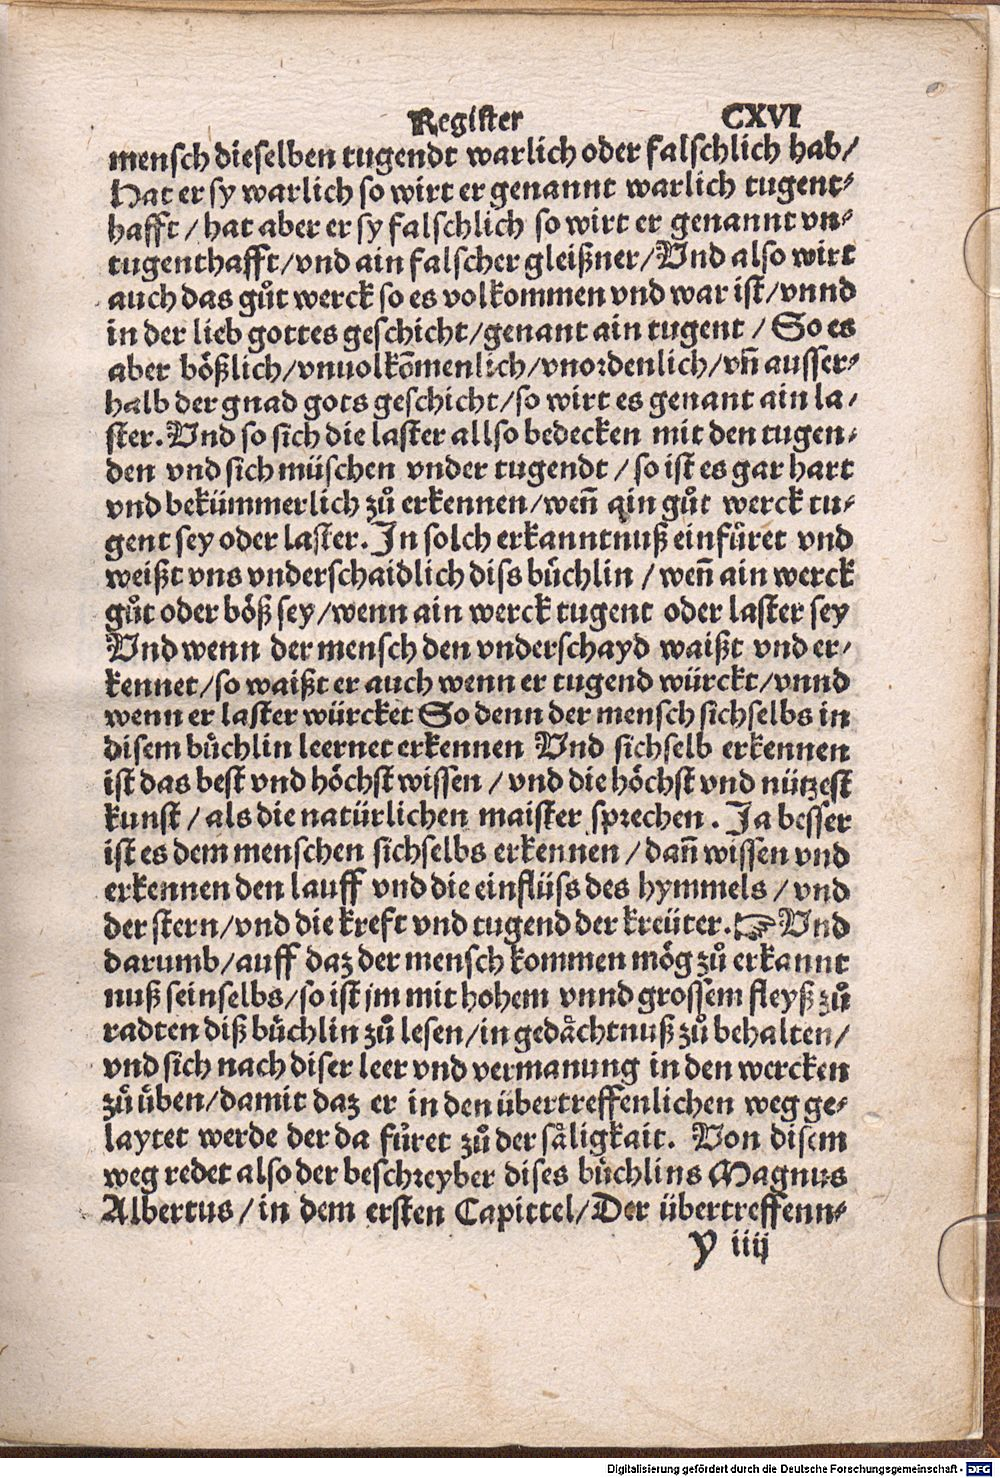 Register CXVI
mensch dieselben tugendt warlich oder falschlich hab/
Hat er sy warlich so wirt er genannt warlich tugent⸗
hafft / hat aber er sy falschlich so wirt er genannt vn⸗
tugenthafft/vnd ain falscher gleißner/Vnd also wirt
auch das gůt werck so es volkommen vnd war ist/vnnd
in der lieb gottes geschicht/genant ain tugent / So es
aber bößlich/vnuolkōmenlich/vnordenlich/vn̄ ausser⸗
halb der gnad gots geschicht/so wirt es genant ain la⸗
ster. Vnd so sich die laster allso bedecken mit den tugen⸗
den vnd sich müschen vnder tugendt / so ist es gar hart
vnd bekümmerlich zů erkennen/wen̄ ain gůt werck tu⸗
gent sey oder laster. In solch erkanntnuß einfůret vnd
weißt vns vnderschaidlich diss bůchlin / wen̄ ain werck
gůt oder böß sey/wenn ain werck tugent oder laster sey
Vnd wenn der mensch den vnderschayd waißt vnd er⸗
kennet/so waißt er auch wenn er tugend würckt/vnnd
wenn er laster würcket So denn der mensch sichselbs in
disem bůchlin leernet erkennen Vnd sichselb erkennen
ist das best vnd höchst wissen / vnd die höchst vnd nützest
kunst / als die natürlichen maister sprechen. Ja besser
ist es dem menschen sichselbs erkennen / dan̄ wissen vnd
erkennen den lauff vnd die einflüss des hymmels / vnd
der stern/vnd die kreft vnd tugend der kreüter. ☞ Vnd
darumb/auff daz der mensch kommen mög zů erkannt
nuß seinselbs/so ist jm mit hohem vnnd grossem fleyß zů
radten diß bůchlin zů lesen/in gedåchtnuß zů behalten/
vnd sich nach diser leer vnd vermanung in den wercken
zů ůben/damit daz er in den übertreffenlichen weg ge⸗
laytet werde der da fůret zů der såligkait. Von disem
weg redet also der beschreyber dises bůchlins Magnus
Albertus/in dem ersten Capittel/Der übertreffenn⸗
y iiij
Digitalisierung gefördert durch die Deutsche Forschungsgemeinschaft - DFG